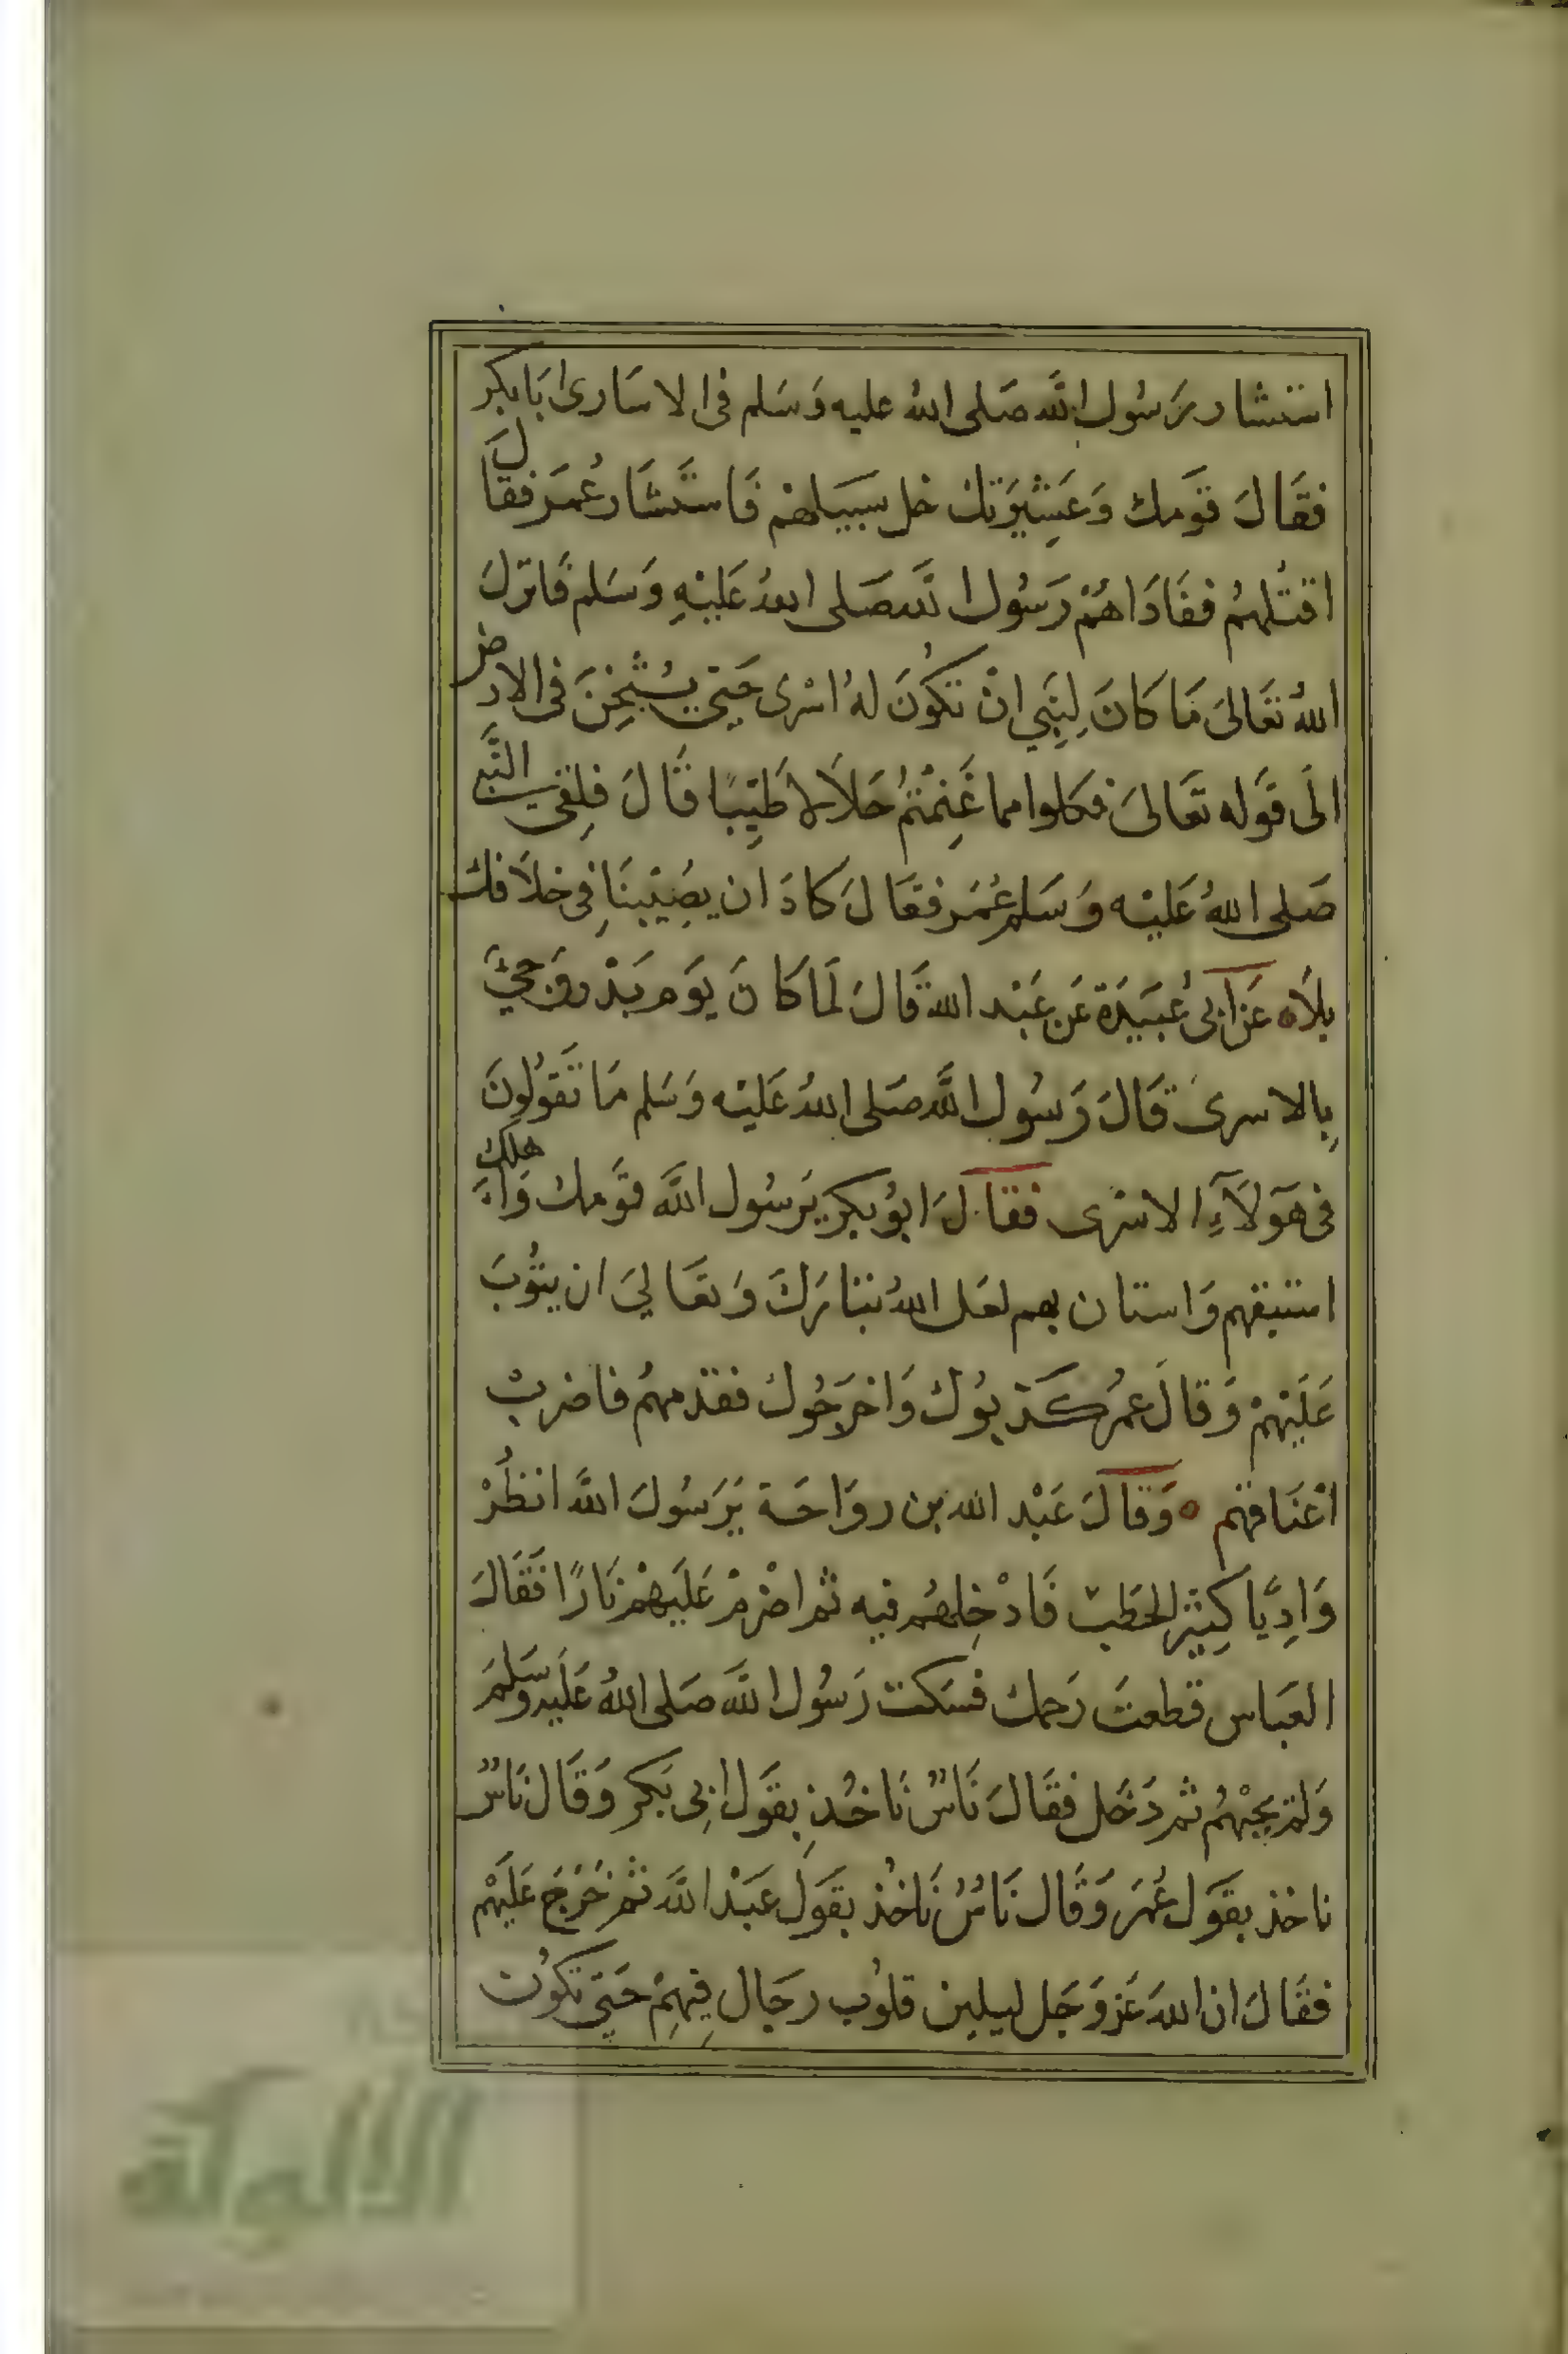 استشار رَسُول اللَّه صَلى اللهُ عليه وَسَلم فى الاسَارى ابَابكر
فقَالَ قَومك وَعَشِيْرَتكَ خل سبيلهْم فَاستَشَار عُمَر فقَالَ
اقتلهمُ ففَادَاهُمْ رَسُول اللَّه صَلى اللهُ عَليْهِ وَسَلم فَانزلَ
اللهُ تعَالىَ مَا كَانَ لِنَبِي انْ تكُونَ لهُ اسْرى حَتى يُثْخِنَ فى الارض
الَى قَوله تعَالىَ فكلوا مما غَنِمْتُمْ حَلاَلاً طَيِّبًا قَالَ فلِقى النَّبى
صَلى اللهُ عَليْه وَسَلم عُمَر فقَالَ كادَ ان يصِيْبنَا فى خلاَفك
بلاَء عَن ابى عُبَيدَة عَن عَبْد الله قَالَ لَمَا كَانَ يَوم بَدْر وَجئَ
بِالاسرى قَالَ رَسُول اللَّه صَلى اللهُ عَليْه وَسَلم مَا تَقولُونَ
فى هَؤلَآءِ الاسْرى فقَالَ ابوُ بكر يَرسُول اللَّه قَومك وَاهلك
استبقهم وَاستان بهم لعَل اللهُ تبَارَكَ وَتعَالىَ ان يتُوبَ
عَلَيْهمْ وَقالَ عمُر كَذبوُك وَاخرَجُوك فقدمهمُ فاضربْ
اعْنَاقهم وَقالَ عَبْد الله بن روَاحَة يَرَسُولَ اللَّه انظُرْ
وَادِيًا كِثيْر الحَطَب فَادْخِلهُم فيه ثم اضْرمْ عَلَيهْم نَارًا فَقَالَ
العَباس قطعتَ رَحمك فسَكت رَسُول اللَّه صَلى اللهُ عَليه وسَلمَ
وَلم يَجِبْهُم ثم دَخَل فقَالَ نَاسٌ نَاخُذ بِقَول ابِى بَكر وَقَال نَاسٌ
ناخذ بقَول عُمَر وَقَال نَاسٌ نَاخُذ بقَول عَبْد اللَّه ثم خَرَجَ عَليْهم
فقَالَ ان اللهَ عَز وَجَل ليلين قلوُب رجَال فِيهِمْ حَتى تكوُن
الألوكة